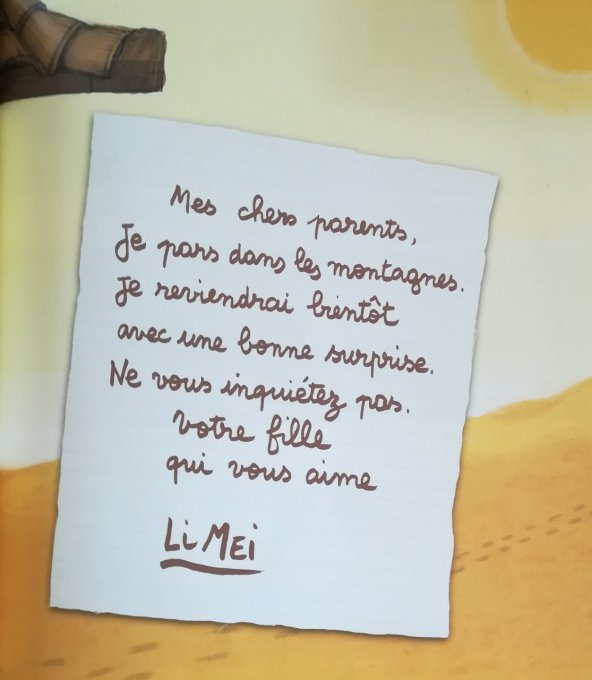 Mes chers parents,
Je pars dans les montagnes.
Je reviendrai bientôt
avec une bonne surprise.
Ne vous inquiétez pas.
Votre fille
qui vous aime
Li Mei